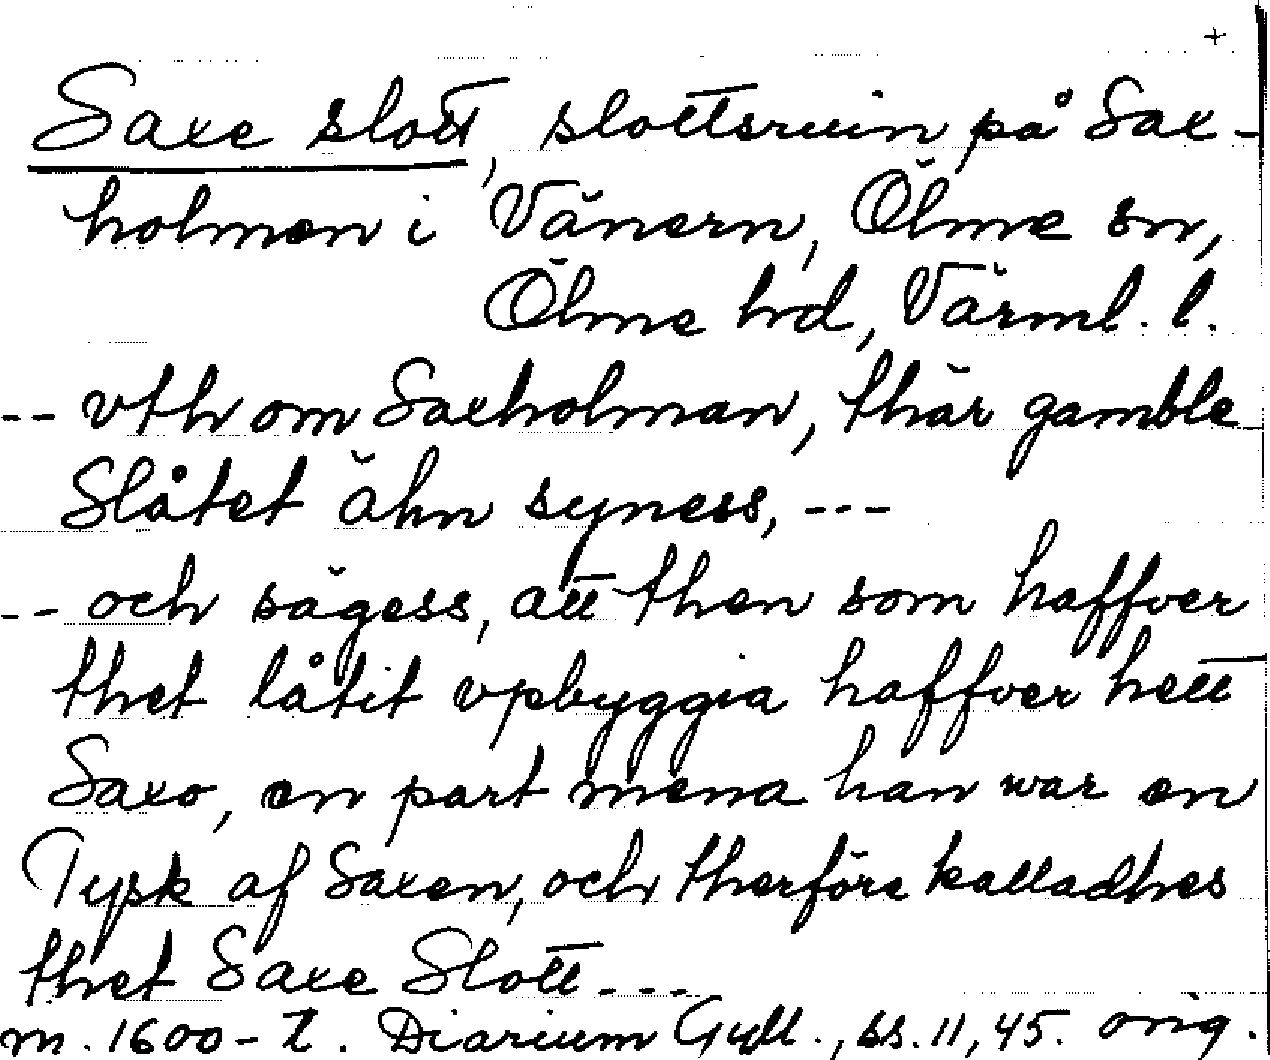 +
Saxe slott, slottsruin på Sax-
holmen i Vänern, Ölme sn,
Ölme hd, Värml. l.
-- vth om Saxholman, thär gamble
Slåtet ähn syness, ---
-- och sägess, att then som haffver
thet låtit vpbyggia haffver hett
Saxo, en part mena han war en
Tysk af Saxen, och therföre kalladhes
thet Saxe Slott ---
m. 1600-t. Diarium Gyll., ss. 11, 45. orig.